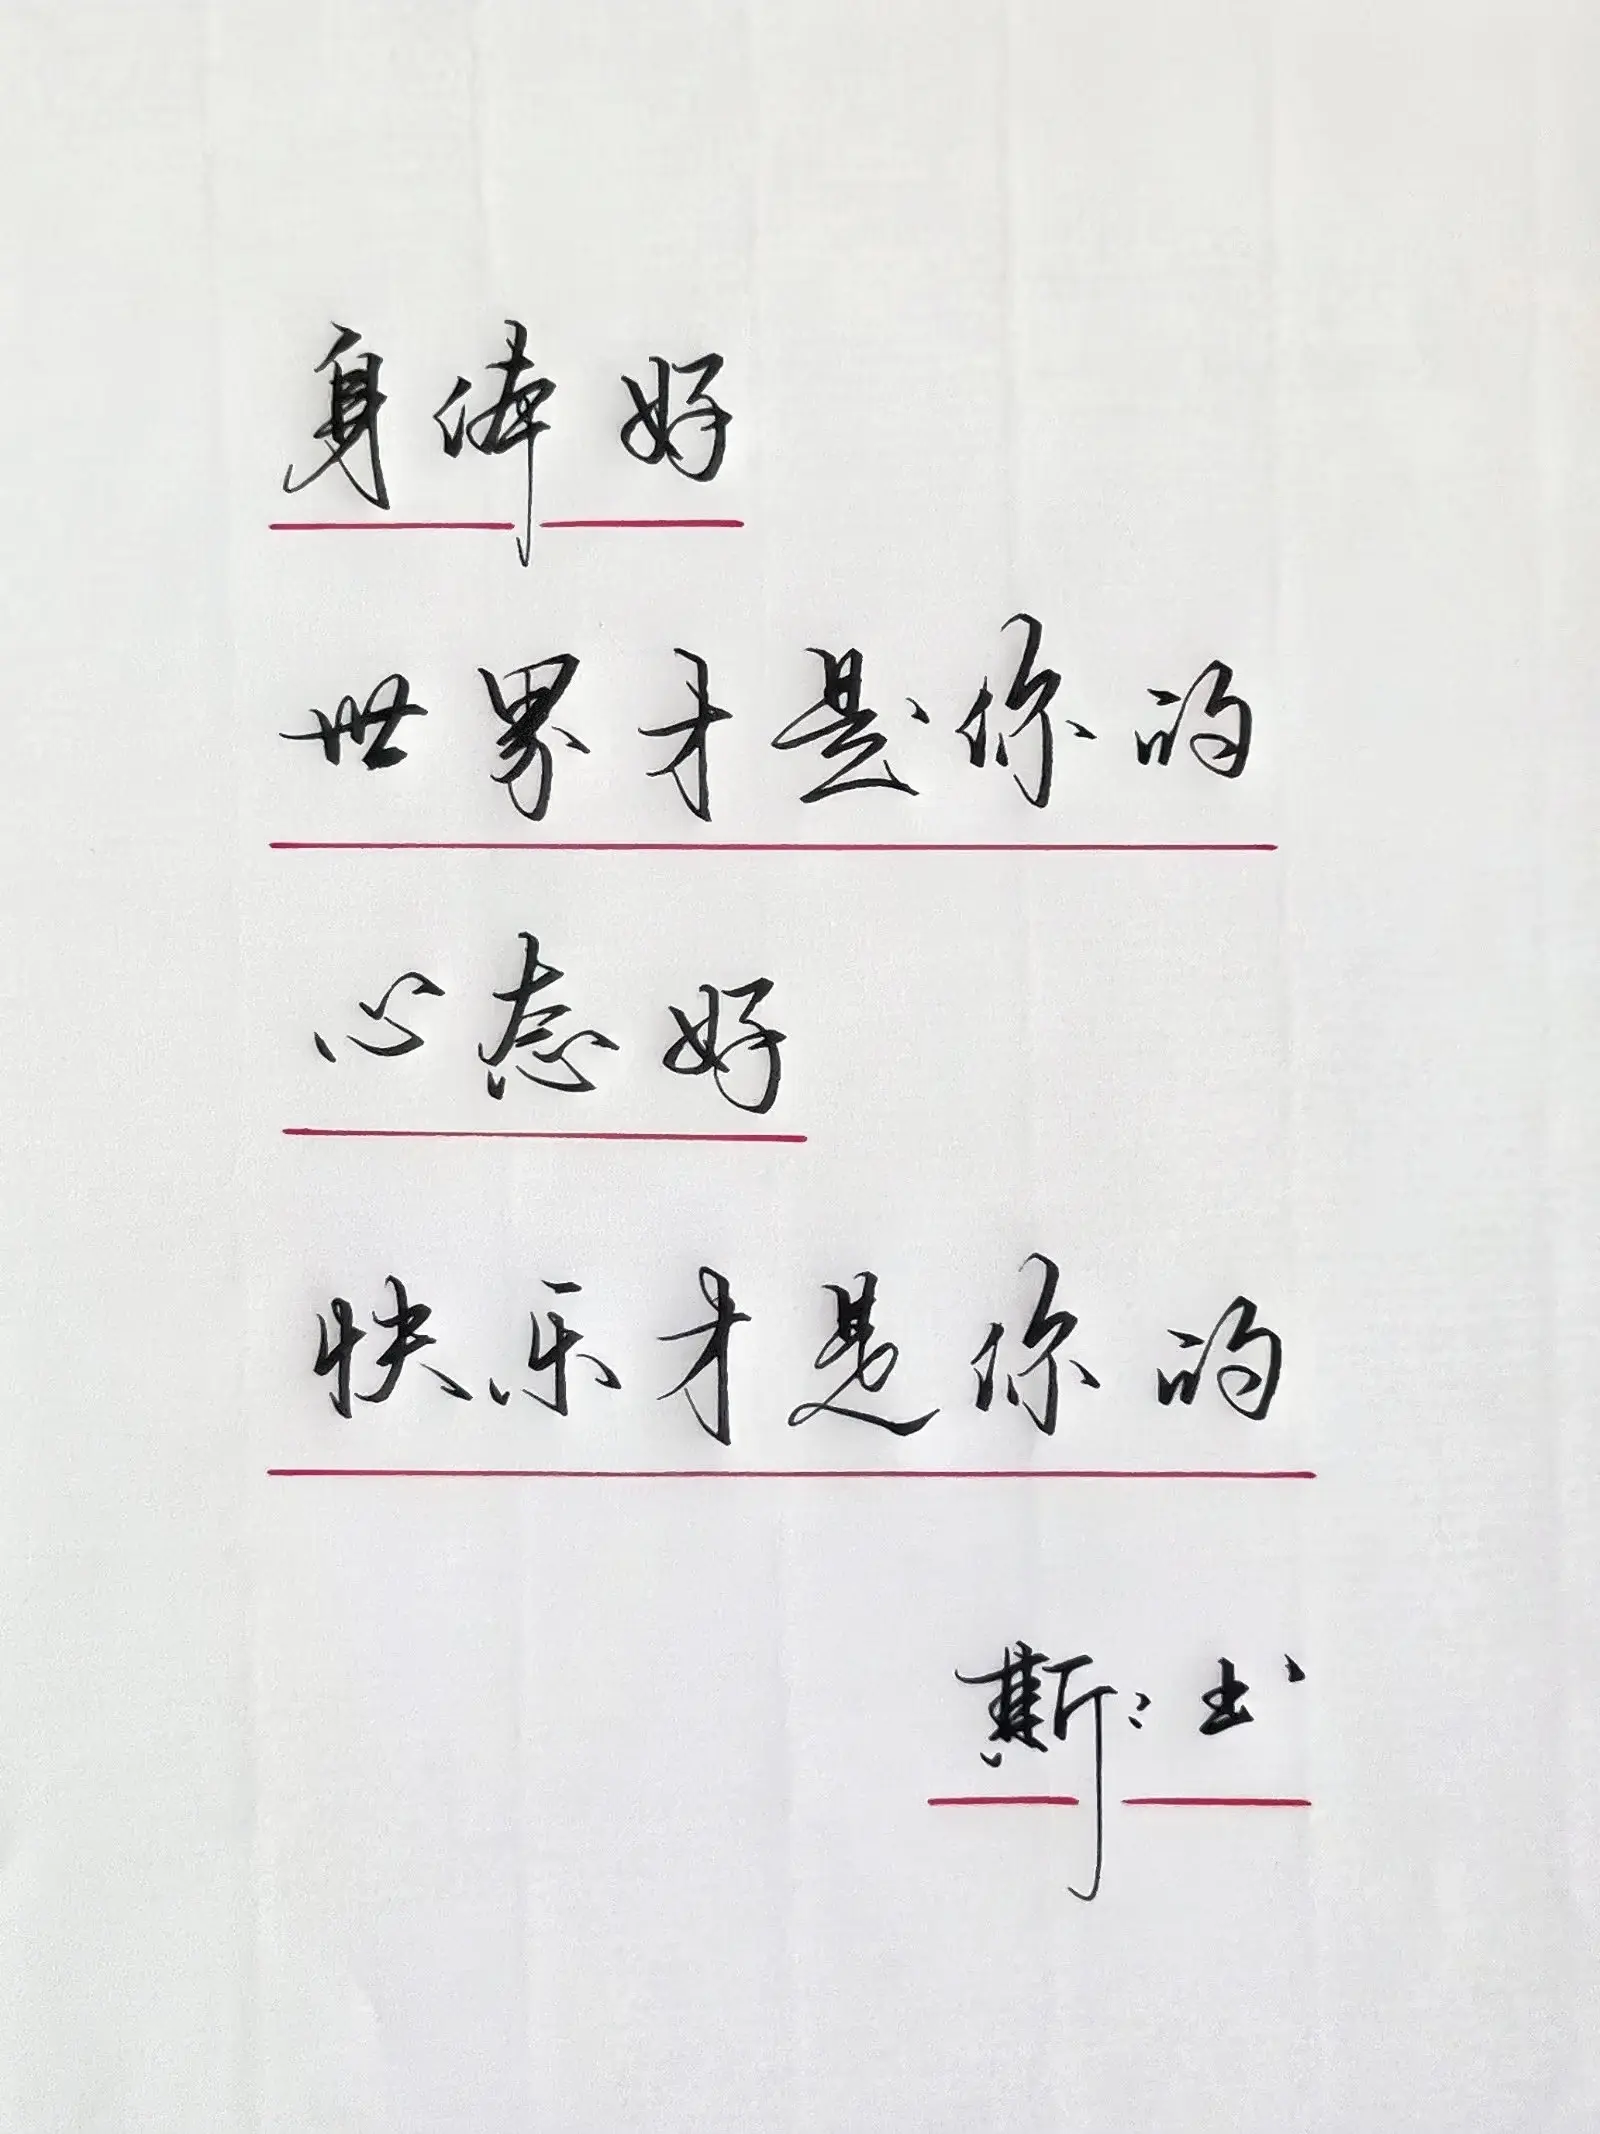 身体好
世界才是你的
心态好
快乐才是你的
斯斯书